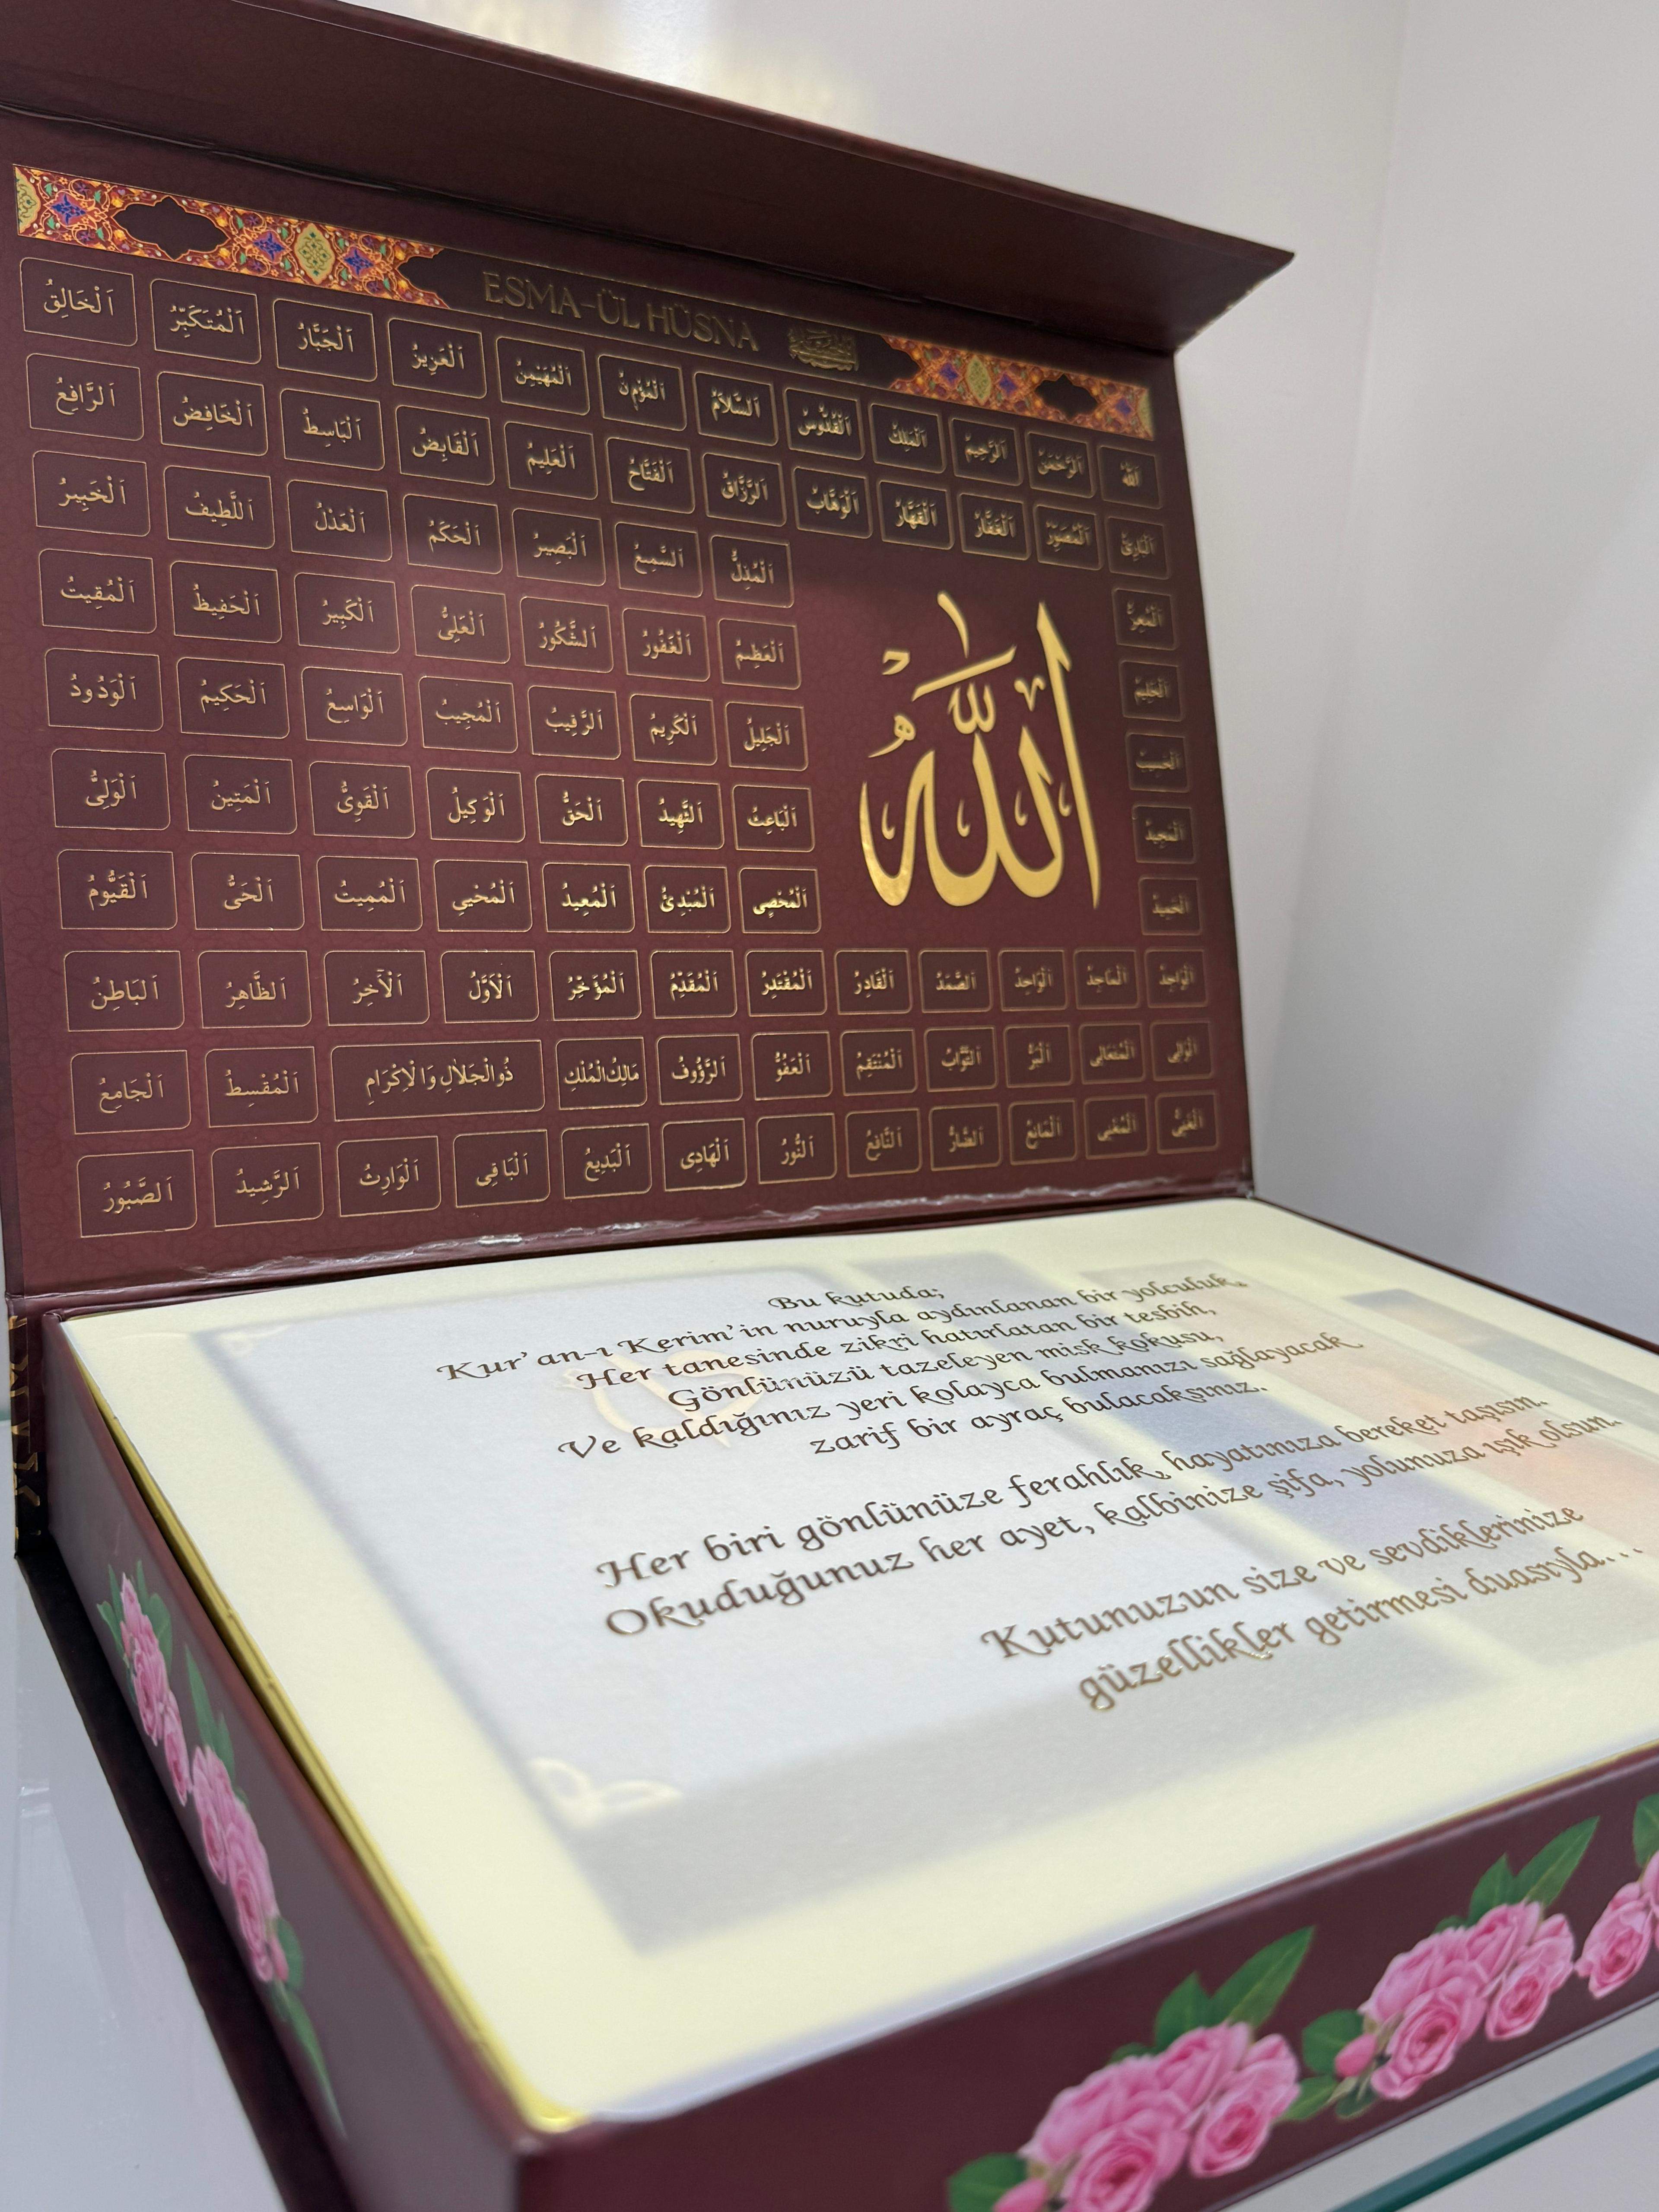 ESMA-ÜL HÜSNA
اَللّٰهُ اَلرَّحْمٰنُ اَلرَّحِيمُ اَلْمَلِكُ اَلْقُدُّوسُ اَلسَّلَامُ اَلْمُؤْمِنُ اَلْمُهَيْمِنُ اَلْعَزِيزُ اَلْجَبَّارُ اَلْمُتَكَبِّرُ اَلْخَالِقُ
اَلْبَارِئُ اَلْمُصَوِّرُ اَلْغَفَّارُ اَلْقَهَّارُ اَلْوَهَّابُ اَلرَّزَّاقُ اَلْفَتَّاحُ اَلْعَلِيمُ اَلْقَابِضُ اَلْبَاسِطُ اَلْخَافِضُ اَلرَّافِعُ
اَلْمُعِزُّ اَلْمُذِلُّ اَلسَّمِيعُ اَلْبَصِيرُ اَلْحَكَمُ اَلْعَدْلُ اَللَّطِيفُ اَلْخَبِيرُ
اَلْحَلِيمُ اَلْعَظِيمُ اَلْغَفُورُ اَلشَّكُورُ اَلْعَلِىُّ اَلْكَبِيرُ اَلْحَفِيظُ اَلْمُقِيتُ
اَلْحَسِيبُ اَلْجَلِيلُ اَلْكَرِيمُ اَلرَّقِيبُ اَلْمُجِيبُ اَلْوَاسِعُ اَلْحَكِيمُ اَلْوَدُودُ
اَلْمَجِيدُ اَلْبَاعِثُ اَلشَّهِيدُ اَلْحَقُّ اَلْوَكِيلُ اَلْقَوِىُّ اَلْمَتِينُ اَلْوَلِىُّ
اَلْحَمِيدُ اَلْمُحْصِى اَلْمُبْدِئُ اَلْمُعِيدُ اَلْمُحْيِي اَلْمُمِيتُ اَلْحَىُّ اَلْقَيُّومُ
اللّٰه
اَلْوَاجِدُ اَلْمَاجِدُ اَلْوَاحِدُ اَلصَّمَدُ اَلْقَادِرُ اَلْمُقْتَدِرُ اَلْمُقَدِّمُ اَلْمُؤَخِّرُ اَلْاَوَّلُ اَلْآخِرُ اَلظَّاهِرُ اَلْبَاطِنُ
اَلْوَالِى اَلْمُتَعَالِى اَلْبَرُّ اَلتَّوَّابُ اَلْمُنْتَقِمُ اَلْعَفُوُّ اَلرَّؤُوفُ مَالِكُ الْمُلْكِ ذُوالْجَلَالِ وَالْاِكْرَامِ اَلْمُقْسِطُ اَلْجَامِعُ
اَلْغَنِىُّ اَلْمُغْنِى اَلْمَانِعُ اَلضَّارُّ اَلنَّافِعُ اَلنُّورُ اَلْهَادِى اَلْبَدِيعُ اَلْبَاقِى اَلْوَارِثُ اَلرَّشِيدُ اَلصَّبُورُ
Bu kutuda;
Kur'an-ı Kerim'in nuruyla aydınlanan bir yolculuk,
Her tanesinde zikri hatırlatan bir tesbih,
Gönlünüzü tazeleyen misk kokusu,
Ve kaldığınız yeri kolayca bulmanızı sağlayacak
zarif bir ayraç bulacaksınız.
Her biri gönlünüze ferahlık, hayatınıza bereket taşısın.
Okuduğunuz her ayet, kalbinize şifa, yolunuza ışık olsun.
Kutunuzun size ve sevdiklerinize
güzellikler getirmesi duasıyla...